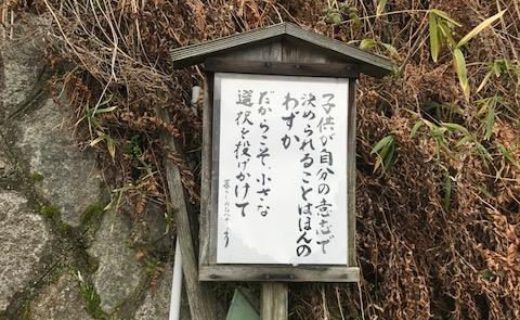 子供が自分の意志で
決められることはほんの
わずか
だからこそ小さな
選択を投げかけて